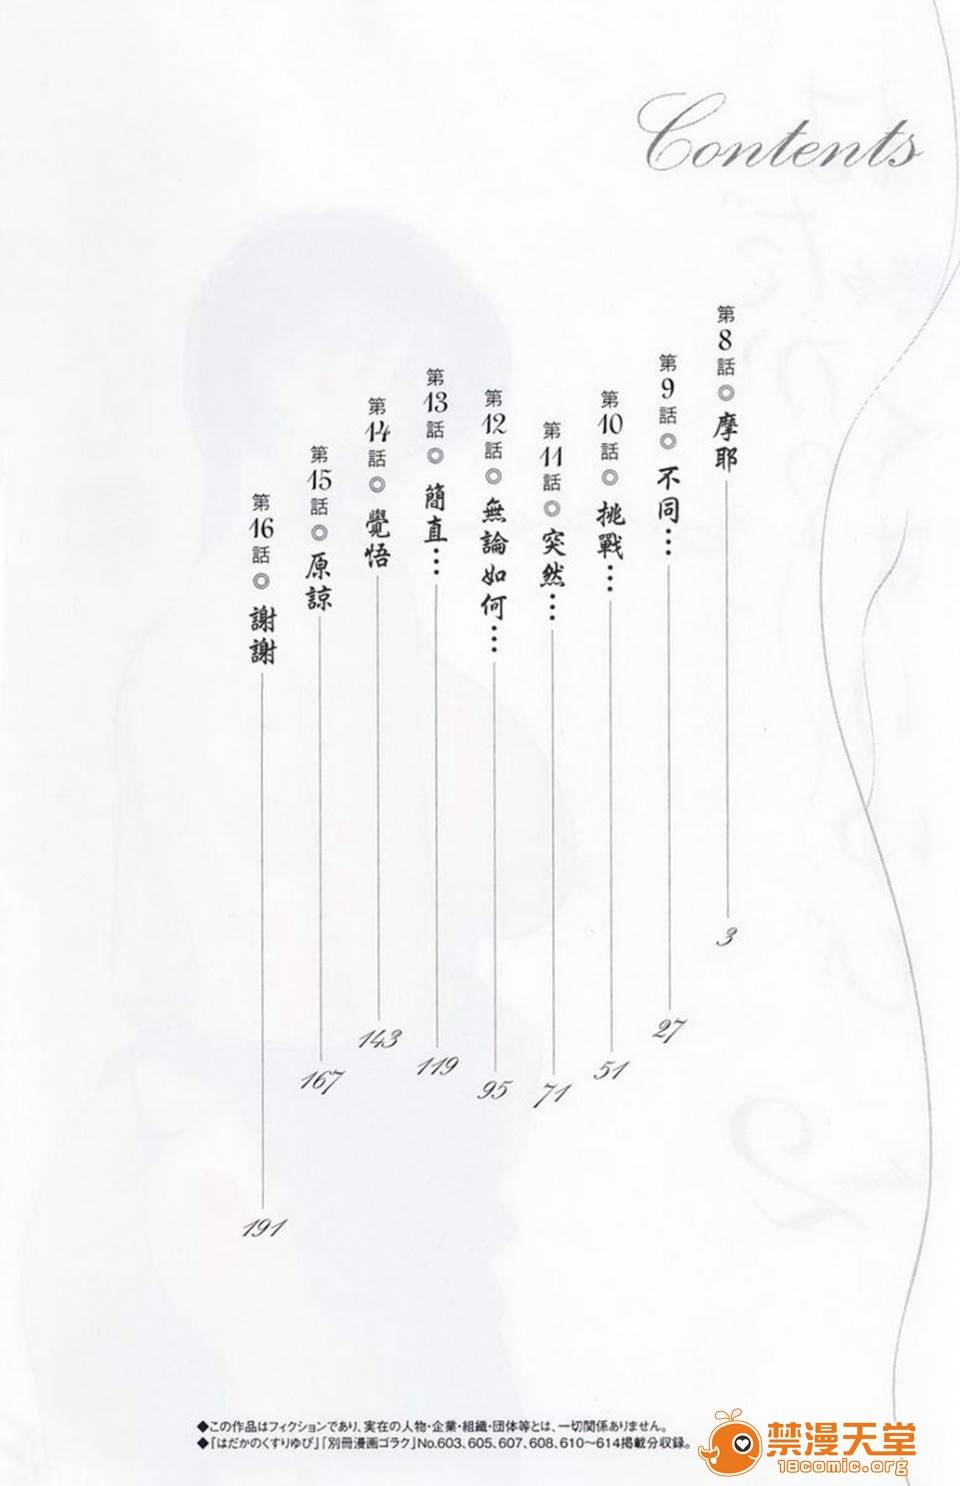 Contents
第8話◎摩耶 3
第9話◎不同… 27
第10話◎挑戰… 51
第11話◎突然… 71
第12話◎無論如何… 95
第13話◎簡直… 119
第14話◎覺悟 143
第15話◎原諒 167
第16話◎謝謝 191
◆この作品はフィクションであり、実在の人物・企業・組織・団体等とは、一切関係ありません。
◆『はだかのくすりゆび』『別冊漫画ゴラク』No.603、605、607、608、610〜614掲載分収録。
禁漫天堂
18comic.org